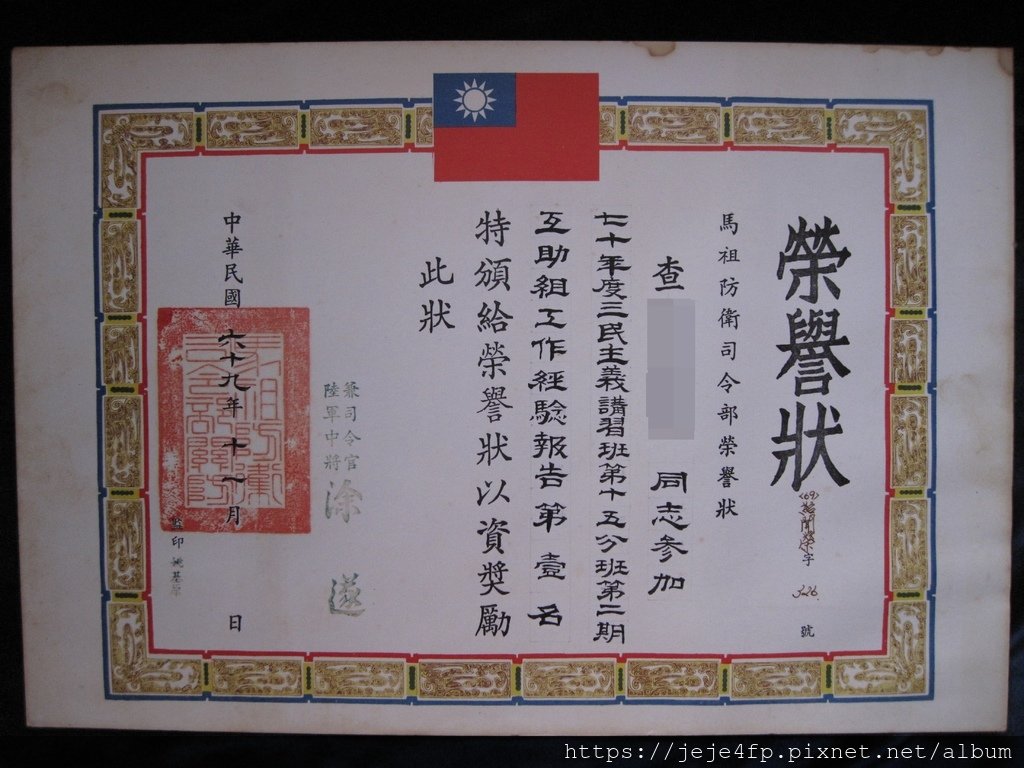 榮譽狀
(69)
字
號
馬祖防衛司令部榮譽狀
查
同志參加
七十年度三民主義講習班第十五分班第二期
互助組工作經驗報告第壹名
特頒給榮譽狀以資獎勵
此狀
兼司令官
陸軍中將
涂遂
中華民國六十九年十一月日
監印
https://jeje4fp.pixnet.net/album